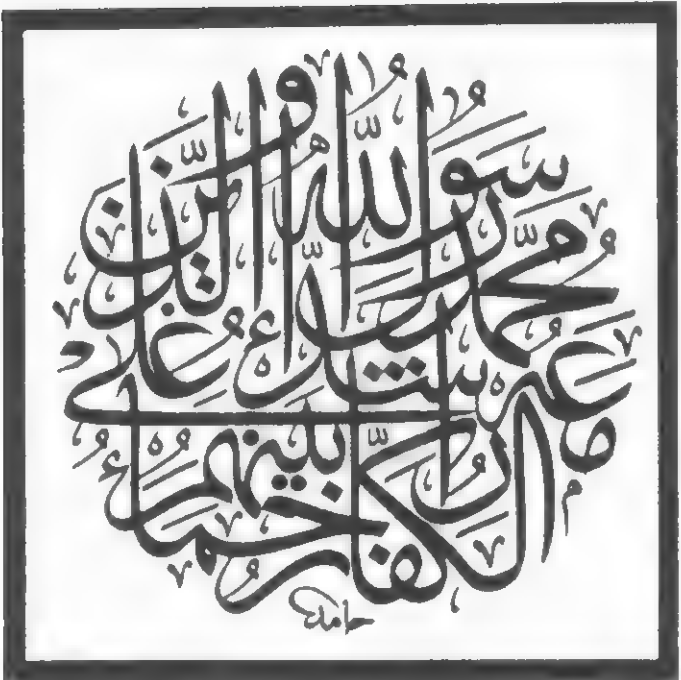 مُحَمَّدٌ رَسُولُ اللّٰهِ وَالَّذِينَ مَعَهُ أَشِدَّاءُ عَلَى الْكُفَّارِ رُحَمَاءُ بَيْنَهُمْ
حامد